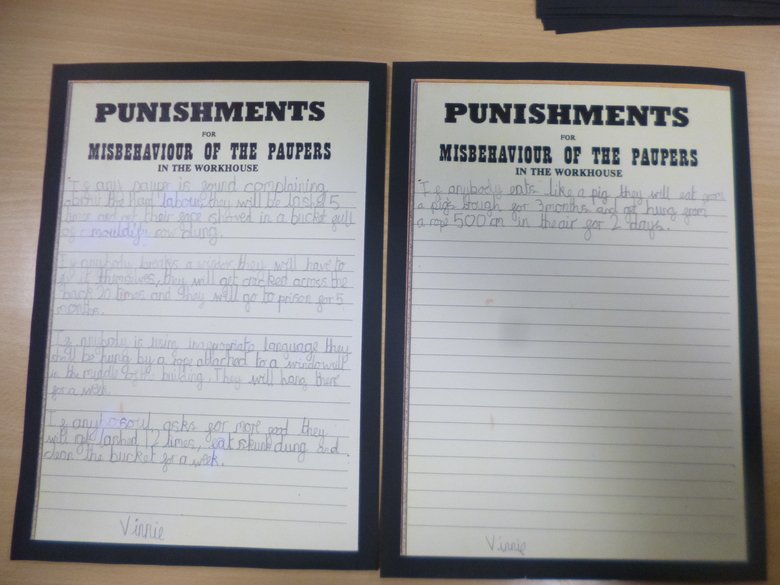 PUNISHMENTS
FOR
MISBEHAVIOUR OF THE PAUPERS
IN THE WORKHOUSE
If any pauper is found complaining
about the hard labour they will be lashed 5
times and get their face shoved in a bucket full
of mouldy cow dung.
If anybody breaks a window they will have to
it themselves, they will get across the
back 20 times and they will go to prison for 5
months.
If anybody is using inappropriate language they
shall be hung by a rope attached to a
in the middle of the building. They will hang there
for a week.
If any soul asks for more food they
will get lashed 12 times, eat skunk dung and
clean the bucket for a week.
Vinnie
PUNISHMENTS
FOR
MISBEHAVIOUR OF THE PAUPERS
IN THE WORKHOUSE
If anybody eats like a pig they will eat from
a pigs trough for 3 months and get hung from
a rope 500 cm in the air for 2 days.
Vinnie